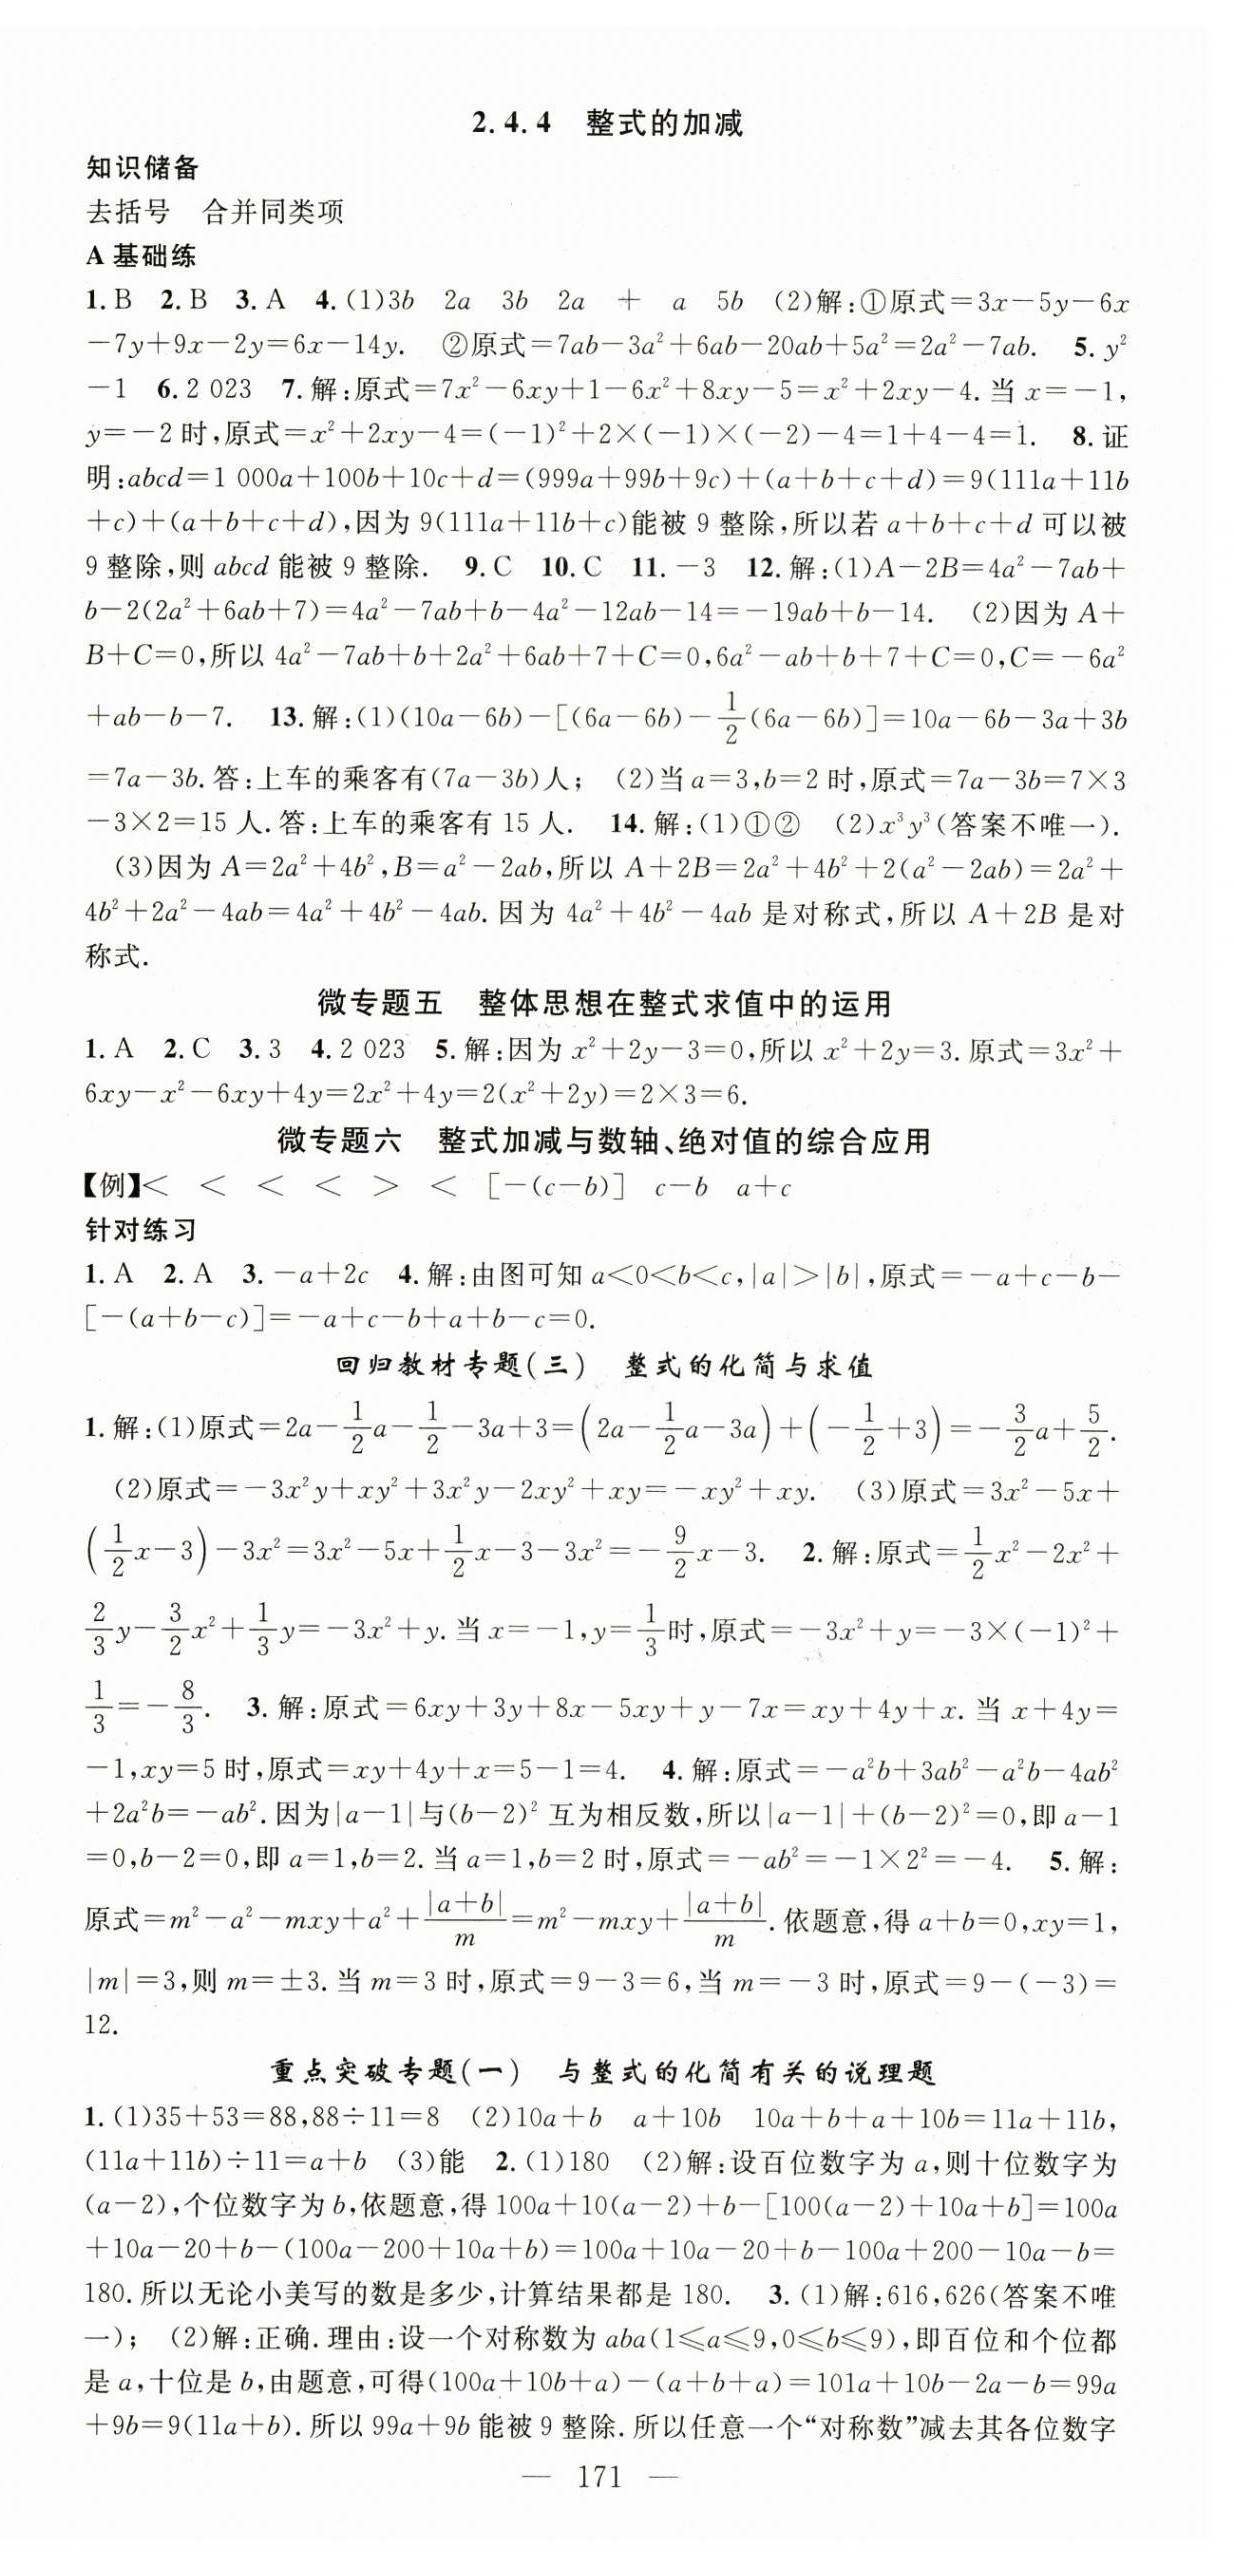 2.4.4　整式的加减
知识储备
去括号　合并同类项
A 基础练
1.B　2.B　3.A　4.(1)3b　2a　3b　2a　+　a　5b　(2)解:①原式=3x-5y-6x
-7y+9x-2y=6x-14y.　②原式=7ab-3a²+6ab-20ab+5a²=2a²-7ab.　5.y²
-1　6.2 023　7.解:原式=7x²-6xy+1-6x²+8xy-5=x²+2xy-4.当 x=-1,
y=-2 时,原式=x²+2xy-4=(-1)²+2×(-1)×(-2)-4=1+4-4=1.　8.证
明:abcd=1 000a+100b+10c+d=(999a+99b+9c)+(a+b+c+d)=9(111a+11b
+c)+(a+b+c+d),因为 9(111a+11b+c)能被 9 整除,所以若 a+b+c+d 可以被
9 整除,则 abcd 能被 9 整除.　9.C　10.C　11.-3　12.解:(1)A-2B=4a²-7ab+
b-2(2a²+6ab+7)=4a²-7ab+b-4a²-12ab-14=-19ab+b-14.　(2)因为 A+
B+C=0,所以 4a²-7ab+b+2a²+6ab+7+C=0,6a²-ab+b+7+C=0,C=-6a²
+ab-b-7.　13.解:(1)(10a-6b)-[(6a-6b)-1/2(6a-6b)]=10a-6b-3a+3b
=7a-3b.答:上车的乘客有(7a-3b)人;　(2)当 a=3,b=2 时,原式=7a-3b=7×3
-3×2=15 人.答:上车的乘客有 15 人.　14.解:(1)①②　(2)x³y³(答案不唯一).
(3)因为 A=2a²+4b²,B=a²-2ab,所以 A+2B=2a²+4b²+2(a²-2ab)=2a²+
4b²+2a²-4ab=4a²+4b²-4ab.因为 4a²+4b²-4ab 是对称式,所以 A+2B 是对
称式.
微专题五　整体思想在整式求值中的运用
1.A　2.C　3.3　4.2 023　5.解:因为 x²+2y-3=0,所以 x²+2y=3.原式=3x²+
6xy-x²-6xy+4y=2x²+4y=2(x²+2y)=2×3=6.
微专题六　整式加减与数轴、绝对值的综合应用
【例】<　<　<　<　>　<　[-(c-b)]　c-b　a+c
针对练习
1.A　2.A　3.-a+2c　4.解:由图可知 a<0<b<c,|a|>|b|,原式=-a+c-b-
[-(a+b-c)]=-a+c-b+a+b-c=0.
回归教材专题(三)　整式的化简与求值
1.解:(1)原式=2a-1/2a-1/2-3a+3=(2a-1/2a-3a)+(-1/2+3)=-3/2a+5/2.
(2)原式=-3x²y+xy²+3x²y-2xy²+xy=-xy²+xy.　(3)原式=3x²-5x+
(1/2x-3)-3x²=3x²-5x+1/2x-3-3x²=-9/2x-3.　2.解:原式=1/2x²-2x²+
2/3y-3/2x²+1/3y=-3x²+y.当 x=-1,y=1/3时,原式=-3x²+y=-3×(-1)²+
1/3=-8/3.　3.解:原式=6xy+3y+8x-5xy+y-7x=xy+4y+x.当 x+4y=
-1,xy=5 时,原式=xy+4y+x=5-1=4.　4.解:原式=-a²b+3ab²-a²b-4ab²
+2a²b=-ab².因为|a-1|与(b-2)² 互为相反数,所以|a-1|+(b-2)²=0,即 a-1
=0,b-2=0,即 a=1,b=2.当 a=1,b=2 时,原式=-ab²=-1×2²=-4.　5.解:
原式=m²-a²-mxy+a²+|a+b|/m=m²-mxy+|a+b|/m.依题意,得 a+b=0,xy=1,
|m|=3,则 m=±3.当 m=3 时,原式=9-3=6,当 m=-3 时,原式=9-(-3)=
12.
重点突破专题(一)　与整式的化简有关的说理题
1.(1)35+53=88,88÷11=8　(2)10a+b　a+10b　10a+b+a+10b=11a+11b,
(11a+11b)÷11=a+b　(3)能　2.(1)180　(2)解:设百位数字为 a,则十位数字为
(a-2),个位数字为 b,依题意,得 100a+10(a-2)+b-[100(a-2)+10a+b]=100a
+10a-20+b-(100a-200+10a+b)=100a+10a-20+b-100a+200-10a-b=
180.所以无论小美写的数是多少,计算结果都是 180.　3.(1)解:616,626(答案不唯
一);　(2)解:正确.理由:设一个对称数为 aba(1≤a≤9,0≤b≤9),即百位和个位都
是 a,十位是 b,由题意,可得(100a+10b+a)-(a+b+a)=101a+10b-2a-b=99a
+9b=9(11a+b).所以 99a+9b 能被 9 整除.所以任意一个“对称数”减去其各位数字
— 171 —